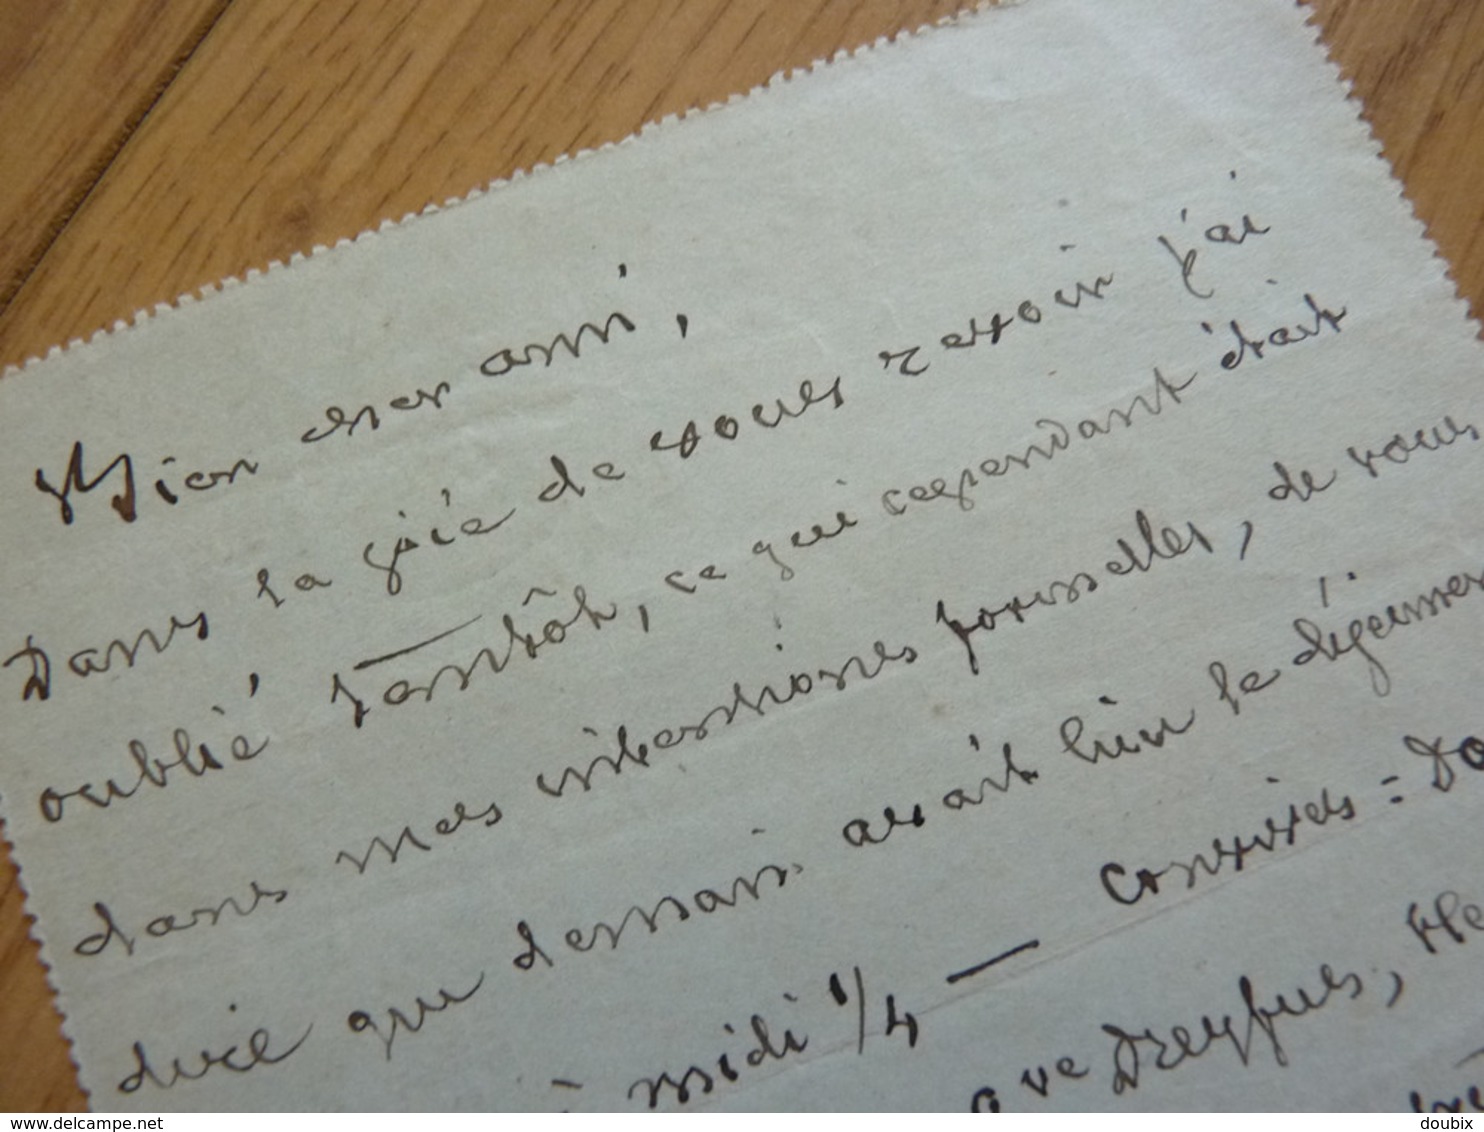 Mon cher ami,
Dans la joie de vous revoir j'ai
oublié tantôt, ce qui cependant était
dans mes intentions formelles, de vous
dire que demain avait lieu le déjeuner
à midi 1/4 — Convives : Do
Dreyfus,
delcampe.net
doubix